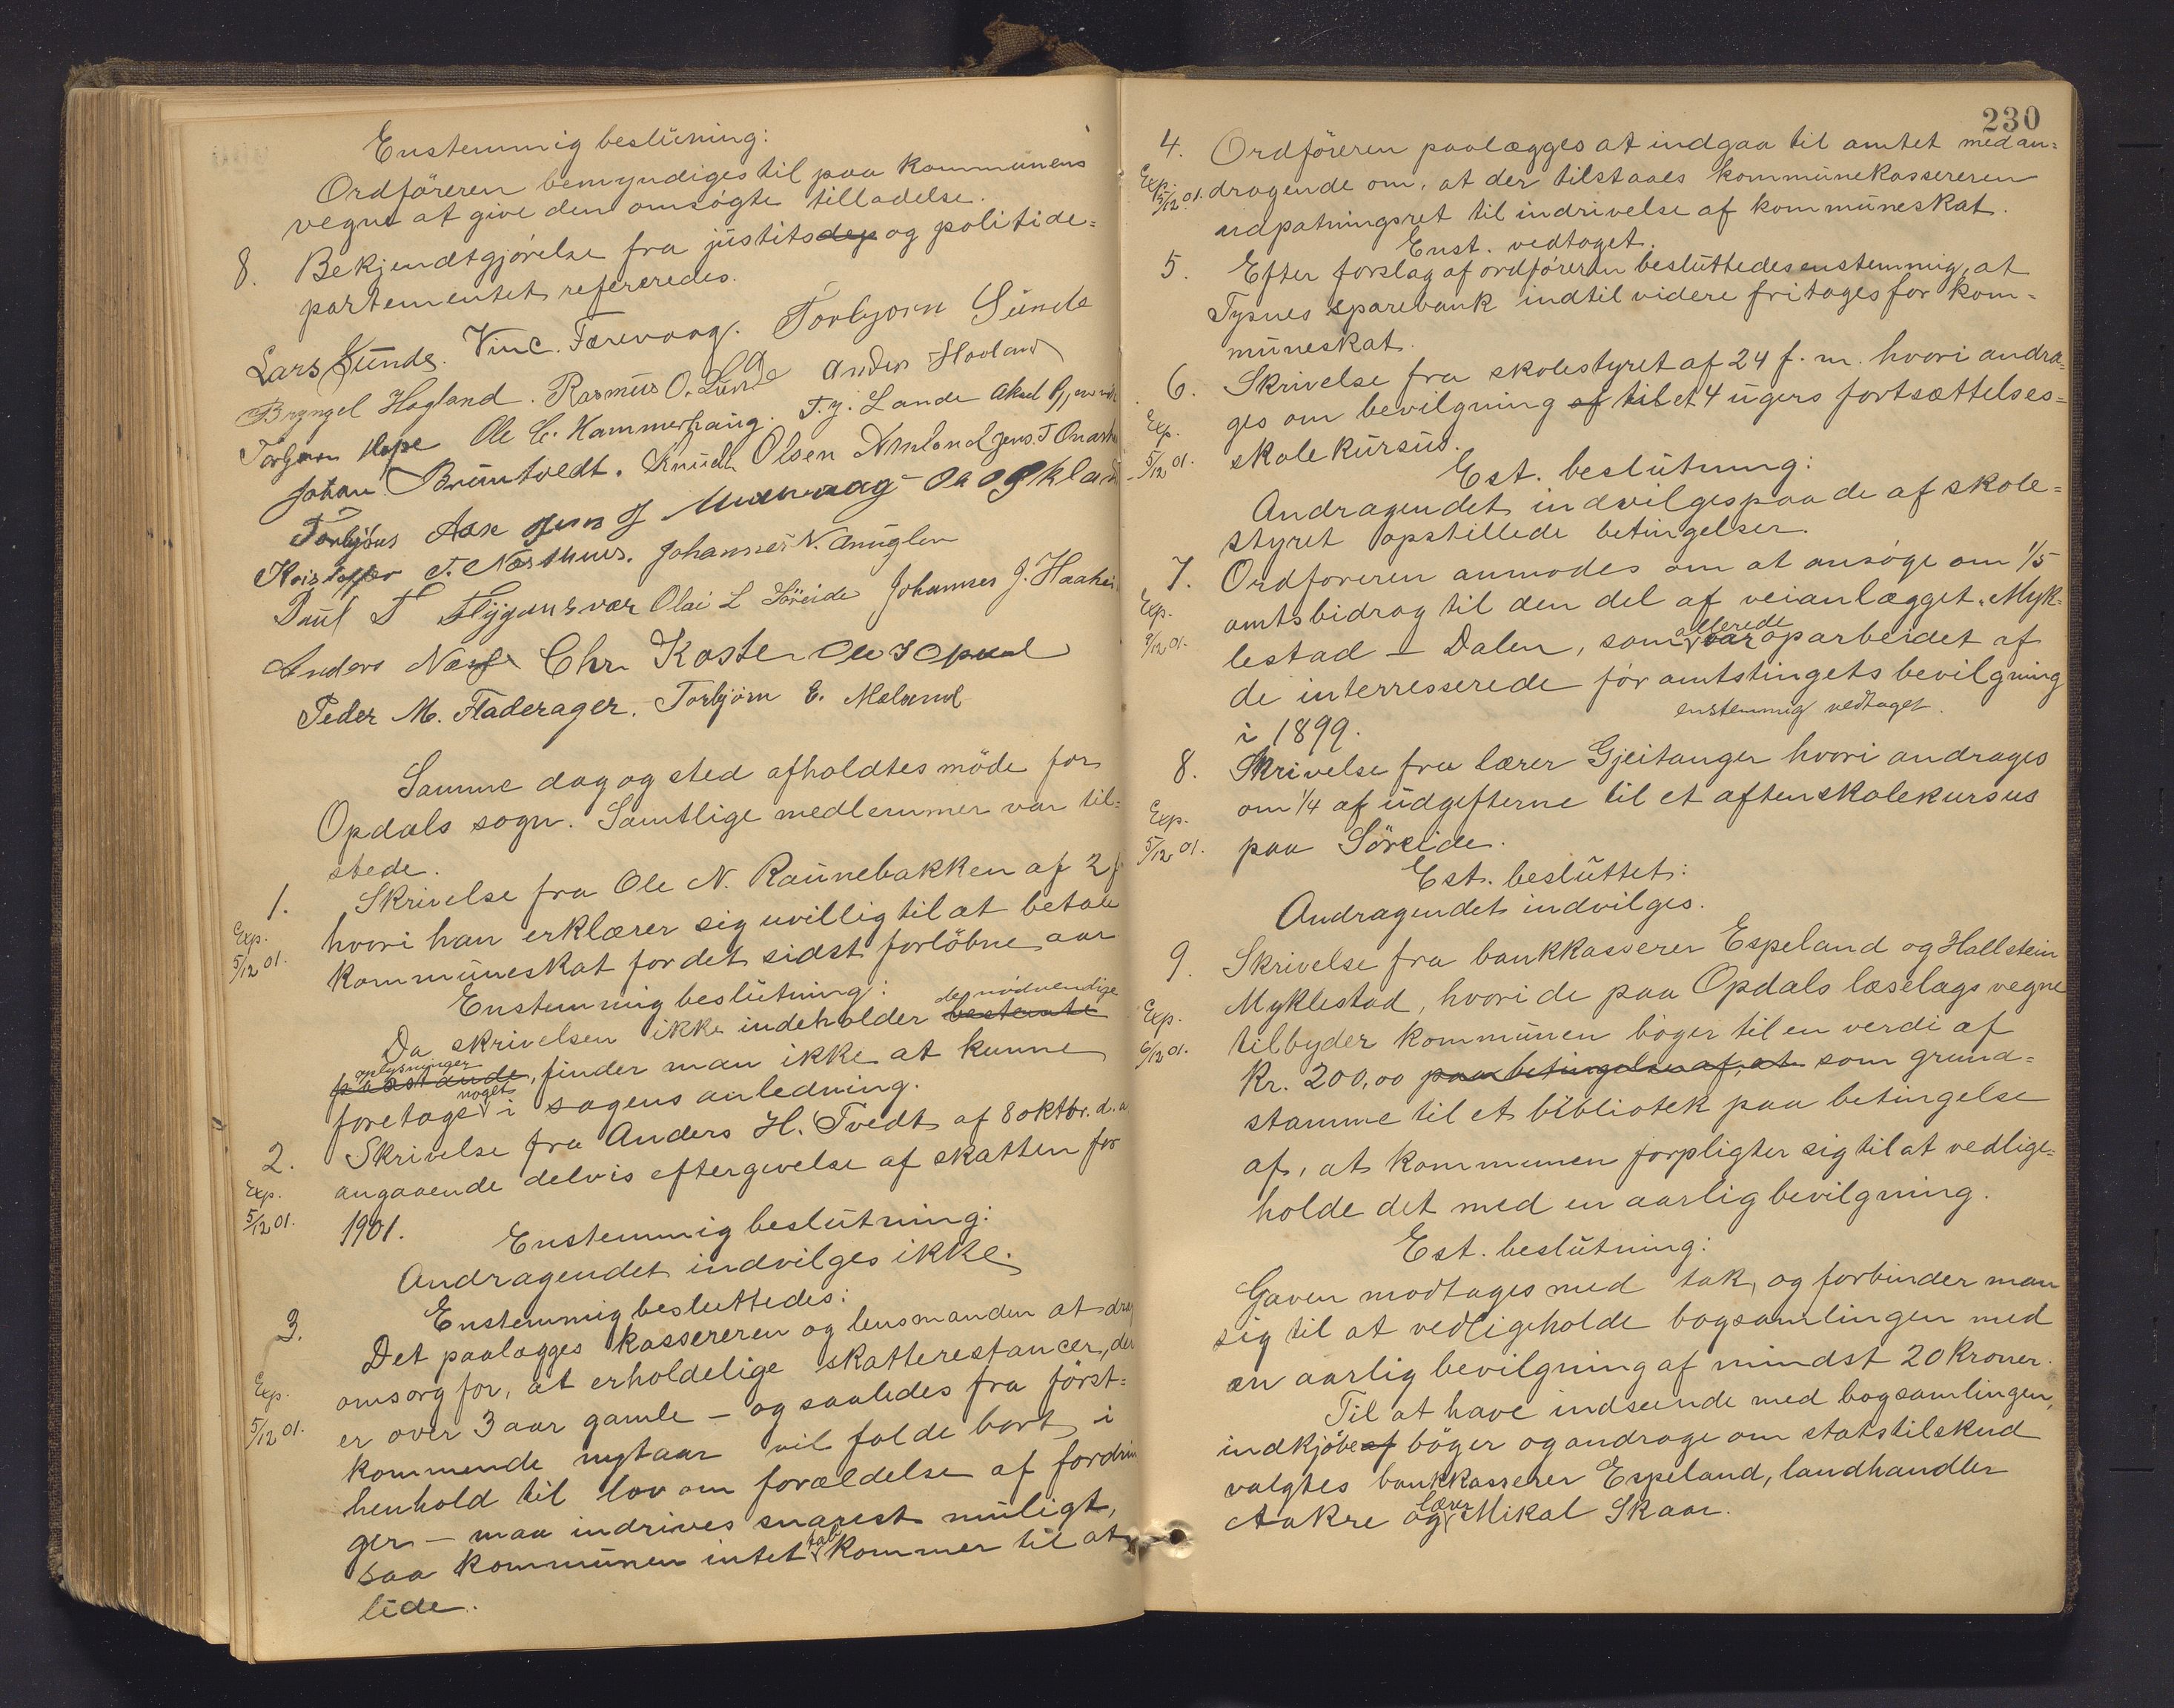 Enstemmig beslutning:
Ordföreren bemyndiges til paa kommunens
vegne at give den omsögte tilladelse.
8. Bekjendtgjörelse fra justitsdep og politide-
partementet refereredes.
Lars Sunde. Vinc. Færevaag. Torbjorn Sunde
Bryngel Hagland. Rasmus O. Lunde Anders Hovland
Torbjørn Hope Ole C. Kammerhaug. T. J. Lande Aksel
Johan Bruntvedt. Knudt Olsen Jens. T
Torbjöns Aase Jens J
Kristoffer T. Næsthuus. Johannes N. Anuglen
Paul T Flygansvær Olai L Söreide Johannes J. Haaheim
Anders Næss Chr. Koster Ole S Opdal
Peder M. Fladerager. Torbjörn E. Meland
Samme dag og sted afholdtes möde for
Opdals sogn. Samtlige medlemmer var til-
stede.
1. Skrivelse fra Ole N. Raunebakken af 2 f
Exp. hvori han erklærer sig uvillig til at betale
5/12 01. kommuneskat for det sidst forlöbne aar
Enstemmig beslutning:
de nödvendige
Da skrivelsen ikke indeholder bestemte
oplysninger
paastande, finder man ikke at kunne
noget
foretage i sagens anledning.
2. Skrivelse fra Anders H. Tvedt af 8 oktbr. d. a
Exp. angaaende delvis eftergivelse af skatten for
5/12 01. 1901.
Enstemmig beslutning:
Andragendet indvilges ikke.
3. Enstemmig besluttedes:
Det paalægges kassereren og lensmanden at drag
Exp. omsorg for, at erholdelige skatterestancer, der
5/12 01. er over 3 aar gamle – og saaledes fra först-
kommende nytaar vil falde bort i
henhold til lov om forældelse af fordrin
ger – maa indrives snarest muligt,
tab
saa kommunen intet kommer til at
lide.
230
4. Ordföreren paalægges at indgaa til amtet med an-
Exp. 5/12 01. dragende om, at der tilstaaes kommunekassereren
udpatningsret til indrivelse af kommuneskat.
Enst. vedtaget.
5. Efter forslag af ordföreren besluttedes enstemmig, at
Tysnes sparebank indtil videre fritages for kom-
muneskat.
6. Skrivelse fra skolestyret af 24 f. m. hvori andra-
Exp. ges om bevilgning af til et 4 ugers fortsættelses-
5/12 01. skolekursus.
Est. beslutning:
Andragendet indvilges paa de af skole-
styret opstillede betingelser.
7. Ordföreren anmodes om at ansöge om 1/5
Exp. amtsbidrag til den del af veianlægget „Myk-
allerede
9/12 01. lestad – Dalen, som var oparbeidet af
de interresserede för amtstingets bevilgning
i 1899. enstemmig vedtaget.
8. Skrivelse fra lærer Gjeitanger hvori andrages
Exp. om 1/4 af udgifterne til et aftenskolekursus
5/12 01. paa Söreide.
Est. besluttet:
Andragendet indvilges.
9. Skrivelse fra bankkasserer Espeland og Hallstein
Exp. Myklestad, hvori de paa Opdals læselags vegne
6/12 01. tilbyder kommunen böger til en verdi af
Kr. 200,00 paa betingelse af, at som grund-
stamme til et bibliotek paa betingelse
af, at kommunen forpligter sig til at vedlige-
holde det med en aarlig bevilgning.
Est. beslutning:
Gaven modtages med tak, og forbinder man
sig til at vedligeholde bogsamlingen med
en aarlig bevilgning af mindst 20 kroner.
Til at have indseende med bogsamlingen,
indkjöbe af böger og andrage om statstilskud
valgtes bankkasserer Espeland, landhandler
lærer
Aakre og Mikal Skaar.